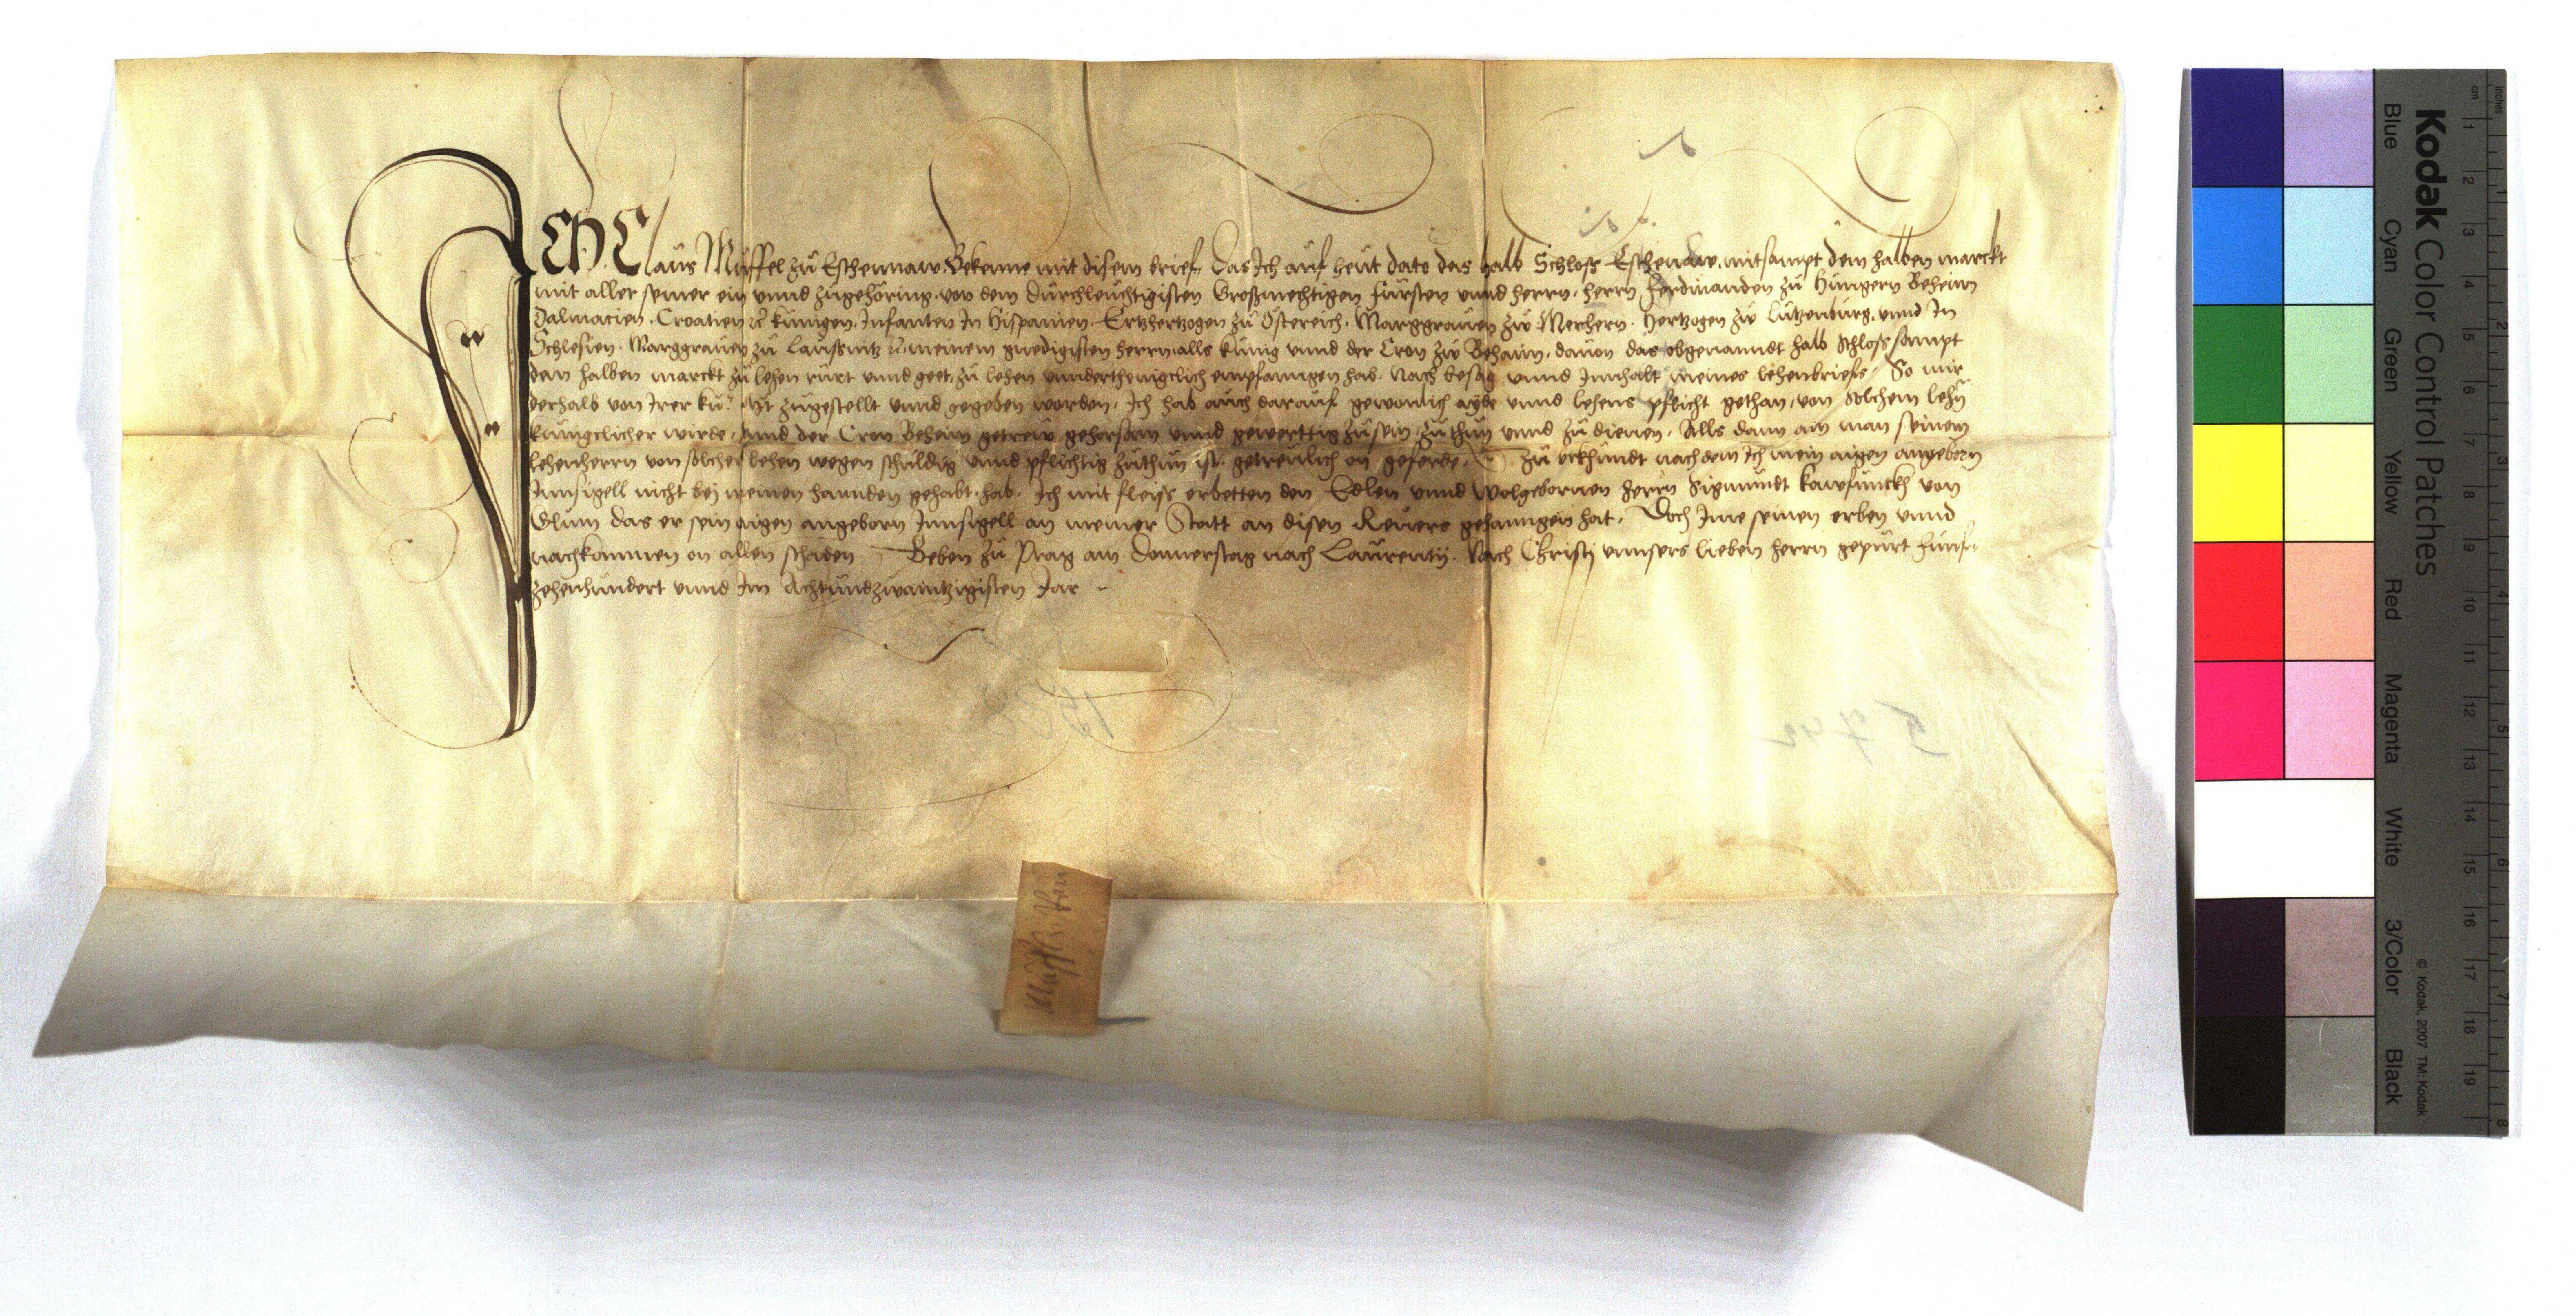 ICH Claus Müffel zu Eschennaw. Bekenne mit disem brief. Das Ich auf heut dato das halb Schloss Eschenaw. mitsampt dem halben marckt
mit aller seiner ein unnd zugehöring. von dem Durchleuchtigisten Großmechtigen fürsten unnd herrn. herrn Ferdinanden zu Hungern Beheim
Dalmacien. Croatien ꝛc künigen. Infanten In Hispanien. Ertzhertzogen zu Östereich. Marggrauen zw Merhern. Hertzogen zw Lützenburg. unnd In
Schlesien. Marggrauen zu Laussnitz ꝛc. meinem gnedigisten herrn. alls künig unnd der Cron zw Behaim. dauon das obgenanndt halb schloss sampt
dem halben marckt zu lehen rürt unnd geet. zu lehen unnderthenigclich empfanngen hab. Nach besag unnd Innhalt meines lehenbriefs. So mir
derhalb von Irer kü. Mt zugestellt unnd gegeben worden. Ich hab auch darauf gewonlich ayde unnd lehens pflicht gethan. von solchem lehn
küngclicher wirde. unnd der Cron Beheim getrew gehorsam unnd gewerttig zu sein. zu thun unnd zu dienen. Alls dann ain man seinem
lehenherrn von solcher lehen wegen schuldig unnd pflichtig zuthun ist. getreulich on geferde. Zu urkhundt nach dem Ich mein aigen angeborn
Innsigell nicht bej meinen hannden gehabt hab. Ich mit fleiss erbetten den Edlen unnd Wolgebornen herrn Sigmundt kawfunckh von
Glum das er sein aigen angeborn Innsigell an meiner Statt an disen Reuers gehanngen hat. Doch Ime seinen erben unnd
nachkommen on allen schaden. Geben zu Prag am Donnerstag nach Laurentij. Nach Christj unnsers lieben herrn gepurt funf-
zehenhundert unnd Im Achtundzwaintzigisten Jar
1528
5742
Kodak Color Control Patches
Blue Cyan Green Yellow Red Magenta White 3/Color Black
© Kodak, 2007 TM: Kodak
cm 1 2 3 4 5 6 7 8 9 10 11 12 13 14 15 16 17 18 19
inches 1 2 3 4 5 6 7 8